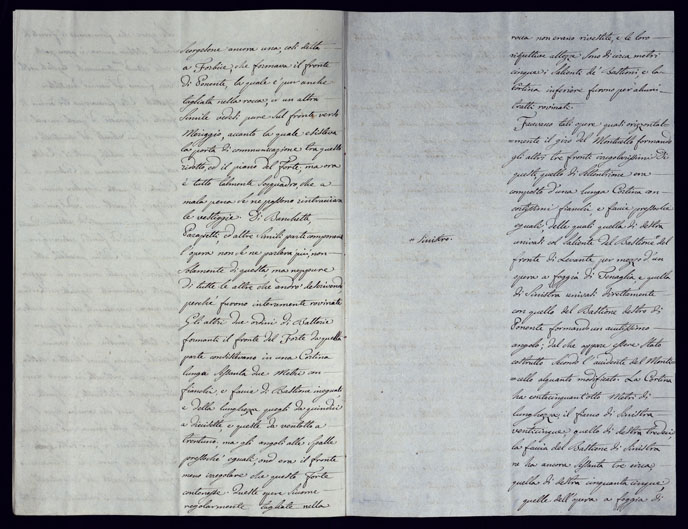 Scorgesene ancora una, così detta
a Forbice, che formava il fronte
di Ponente, la quale è pur anche
tagliata nella rocca, e un altra
simile vedesi pure sul fronte verso
Meriggio, accanto la quale esisteva
la porta di communicazione tra questo
ridotto, ed il piano del Forte, ma ora
è tutto talmente soqquadro, che a
mala pena se ne possono rintracciare
le vestiggie. Di Banchette,
Parapetti, ed altre simili parti componenti
l'opera non se ne parlerà più, non
solamente di questa ma neppure
di tutte le altre che andrò descrivendo
perche furono interamente rovinate
Gli altri due ordini di Batterie
formanti il fronte del Forte da quella
parte consistevano in una Cortina
lunga settanta due Metri con
fianchi, e faccie di Bastioni ineguali
e della lunghezza quegli da quindici
a dicisette e queste da ventotto a
trentuno, ma gli angoli alle spalle
pressoche' eguali, ond' era il fronte
meno irregolare che questo Forte
contenesse. Queste opere siccome
regolarmente tagliate nella
rocca non erano rivestite, e le loro
rispettive altezze sono di circa metri
cinque i Salienti de' Bastioni, e la
Cortina inferiore furono per alcuni
tratti rovinati.
Facevano tali opere quasi orizontal-
mente il giro del Monticello formando
gli altri tre fronti irregolarissimi. Di
questi, quello di Settentrione era
composto d'una lunga Cortina con
cortissimi fianchi e faccie pressoche
eguali, delle quali quella di destra
univasi col Saliente del Bastione "del
" Sinistro.
fronte di Levante per mezzo d'un
opera a foggia di Tenaglia e quella
di Sinistra univasi direttamente
con quello del Bastione destro di
Ponente formando un acutissimo
angolo; dal che appare essere stato
costrutto secondo l'accidente del Monti-
cello alquanto modificato. La Cortina
ha centocinquant'otto Metri di
lunghezza il fianco di Sinistra
venticinque quello di destra tredici
la faccia del Bastione di Sinistra
ne ha ancora settanta tre circa
quella di destra cinquanta cinque,
quelle dell'opera a foggia di